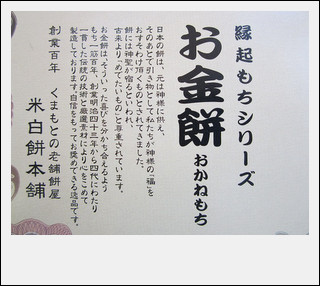 縁起もちシリーズ
お金餅
おかねもち
日本の餅は、元は神様に供え、
そのあとで引き物として私たちが神様の「福」を
おすそわけ頂くものとされてきました。
餅には神聖が宿るといわれ、
古来より「めでたいもの」と尊重されています。
お金餅は「そういった喜びを分かち合えるよう
もち一筋百年、創業明治四十三年から四代にわたり
一貫した伝統の技術と厳選素材により心をこめて
製造しております。自信をもって、お奨めできる逸品です。
創業百年 くまもとの老舗餅屋
米白餅本舗